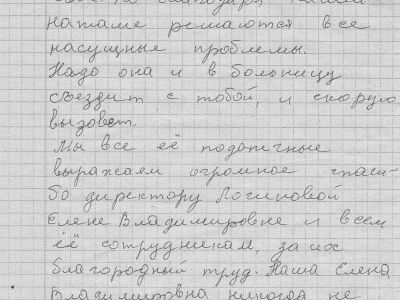 благодаря нашей
Наташе решаются все
насущные проблемы.
Надо она и в больницу
съездит с тобой, и скорую
вызовет.
Мы все её подопечные
выражаем огромное спаси-
бо директору Логиновой
Елене Владимировне и всем
её сотрудникам, за их
благородный труд. Наша Елена
Владимировна никогда не